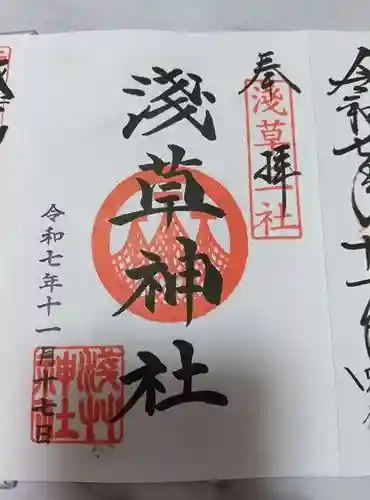 奉拝
淺草一社
淺草神社
令和七年十一月十七日
淺草神社
令和七年十一月